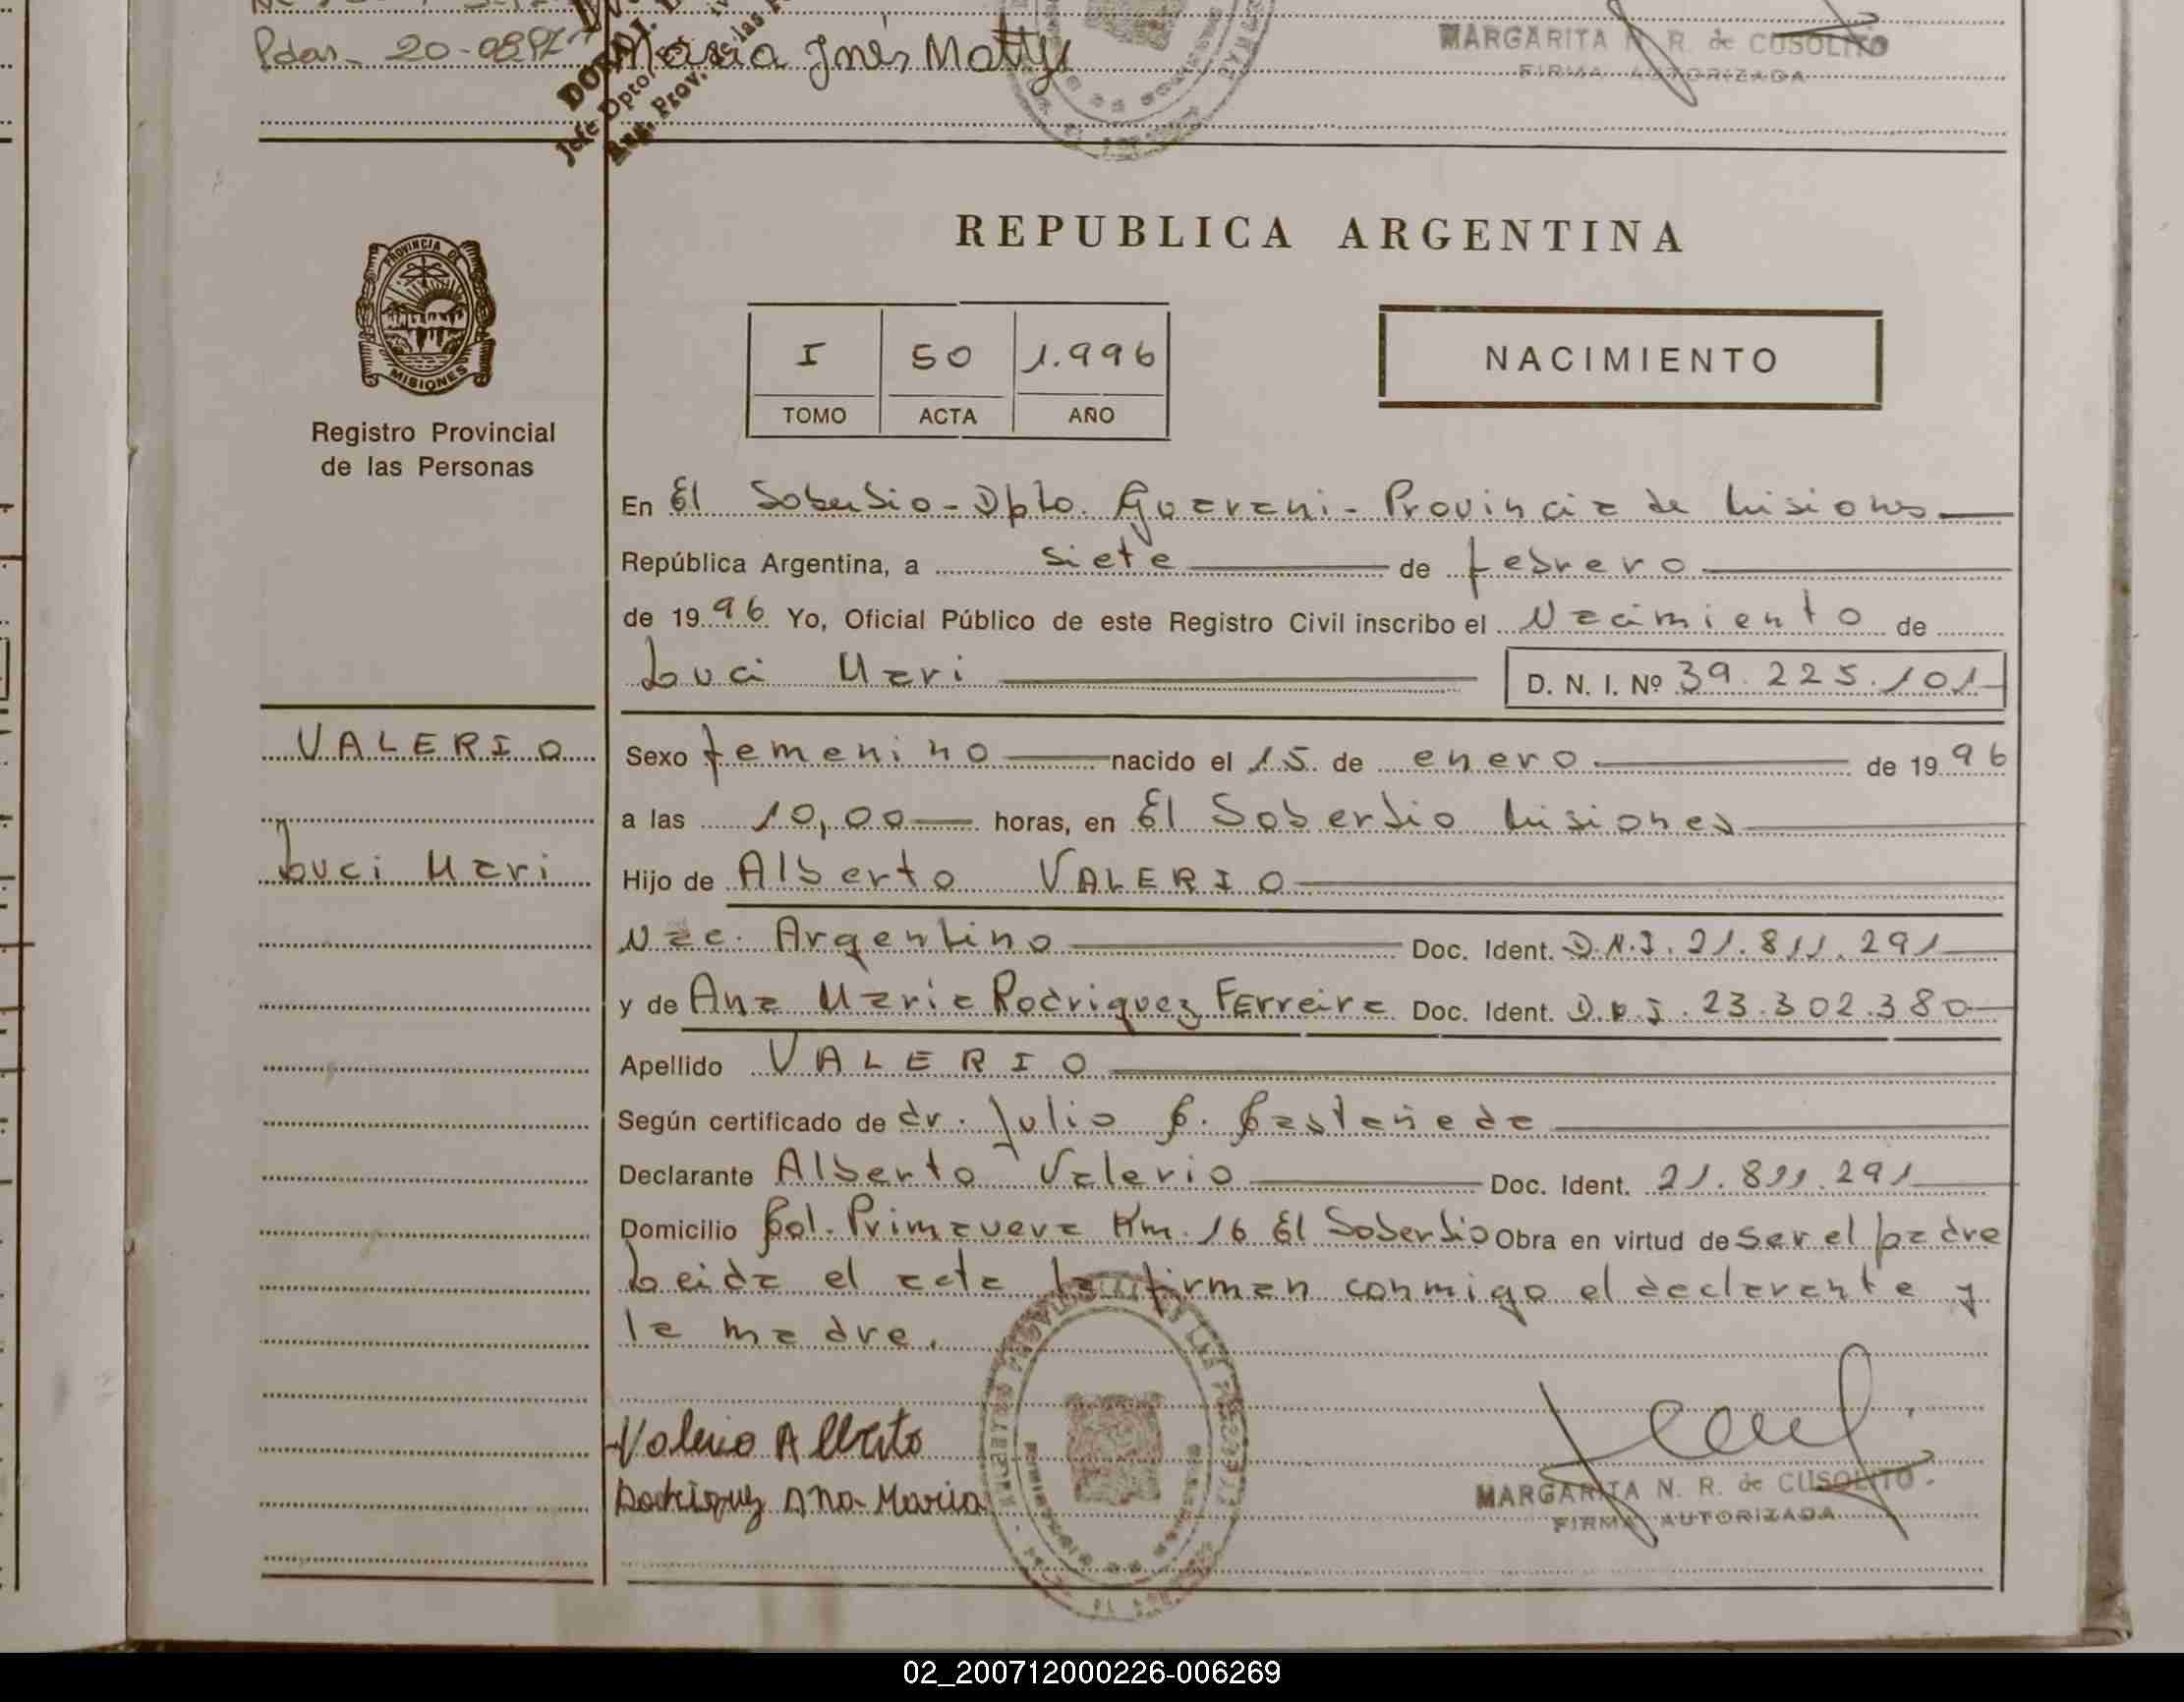 Pdas - 20-08917
María Jnés Mattje
MARGARITA N. R. de CUSOLITO
FIRMA AUTORIZADA
PROVINCIA DE
MISIONES
Registro Provincial
de las Personas
REPUBLICA ARGENTINA
I 50 1.996
TOMO ACTA AÑO
NACIMIENTO
En El Soberbio - Dpto. Guarani - Provincia de Misiones
República Argentina, a siete de febrero
de 1996 Yo, Oficial Público de este Registro Civil inscribo el Nacimiento de
Luci Mari D. N. I. Nº 39.225.101
VALERIO
Luci Mari
Sexo femenino nacido el 15 de enero de 1996
a las 10,00 horas, en El Soberbio Misiones
Hijo de Alberto VALERIO
Nac. Argentino Doc. Ident. D.N.I. 21.811.291
y de Ana Maria Rodriguez Ferreira Doc. Ident. D.N.I. 23.302.380
Apellido VALERIO
Según certificado de dr. Julio C. Castañeda
Declarante Alberto Valerio Doc. Ident. 21.811.291
Domicilio Col. Primavera Km. 16 El Soberbio Obra en virtud de ser el padre
Leida el acta la firman conmigo el declarante y
la madre.
Valerio Alberto
Rodriguez Ana Maria
MARGARITA N. R. de CUSOLITO
FIRMA AUTORIZADA
02_200712000226-006269